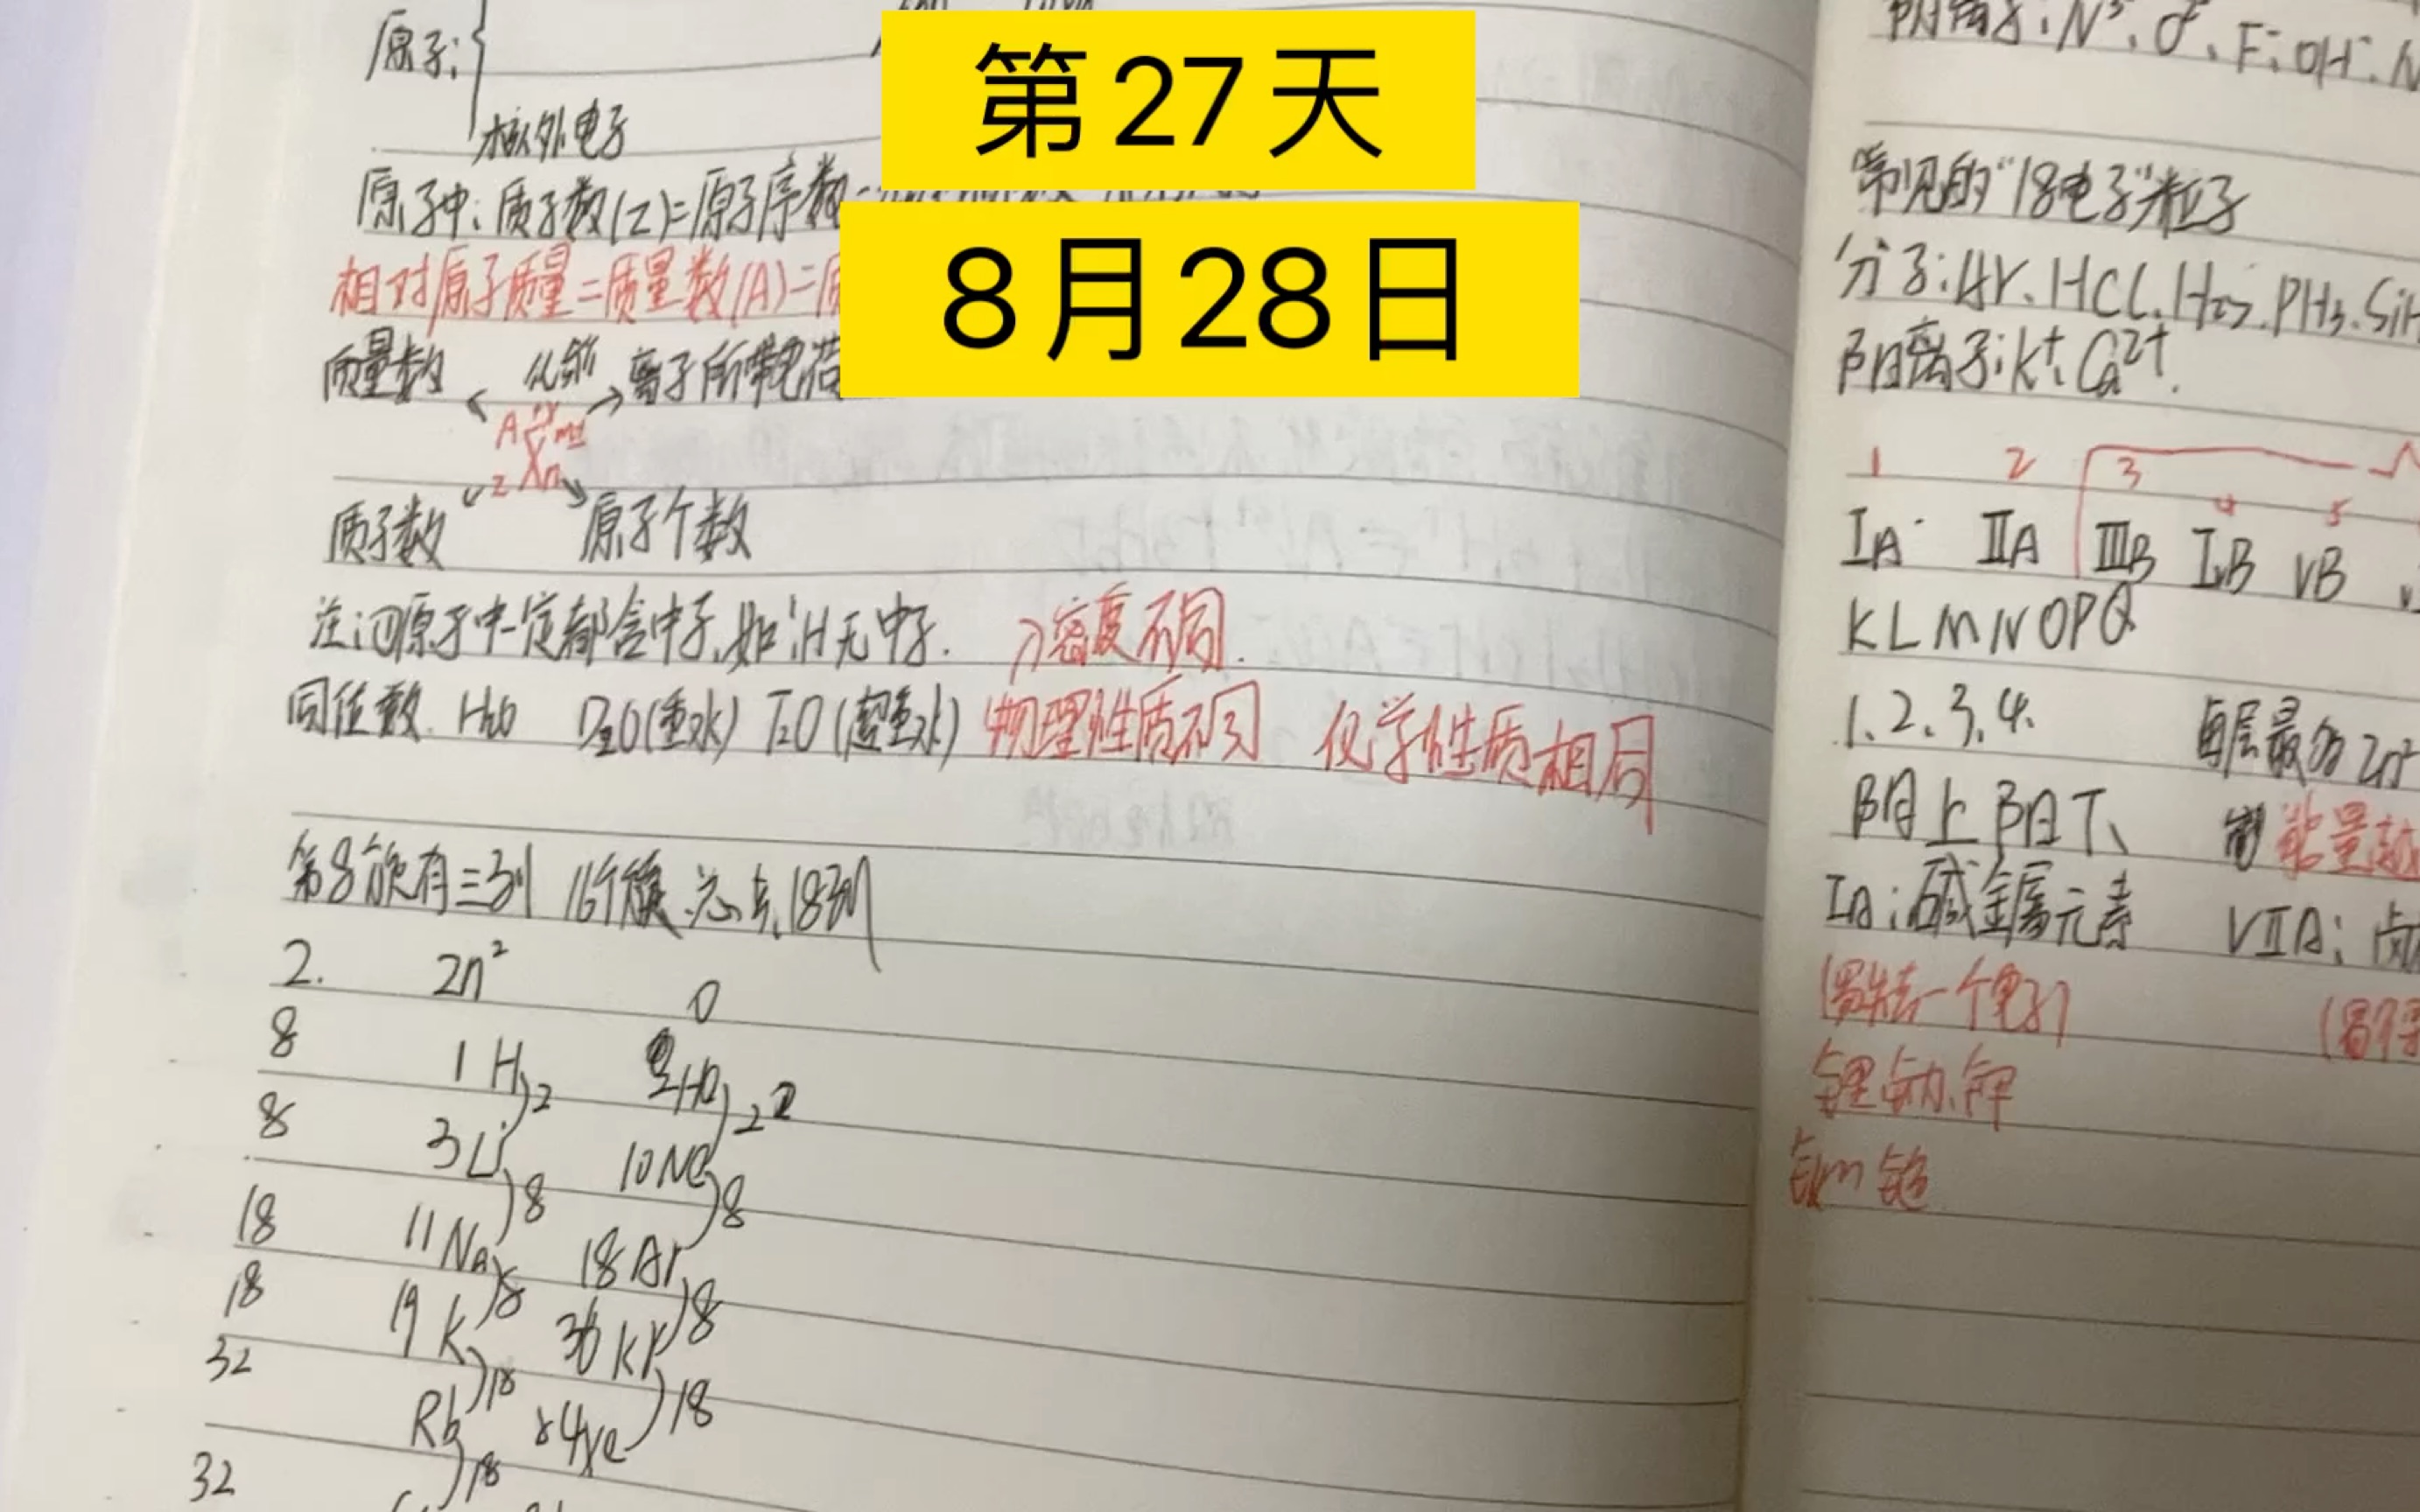 第27天
8月28日
原子:
核外电子
原子中:质子数(Z)=原子序数
相对原子质量=质量数(A)=质
质量数 化合价 离子所带电荷
A X m±
Z n
质子数 原子个数
注:①原子中一定都含中子,如¹H无中子. 密度不同.
同位数 H₂O D₂O(重水) T₂O(超重水) 物理性质不同 化学性质相同
第8族有三列 16个族 总共18列
2. 2n² 0
8 1H 2 2He 2
8 3Li 8 10Ne 8
18 11Na 8 18Ar 8
18 19K 18 36Kr 18
32 Rb 18 54Xe
32
阴离子:N³⁻、O²⁻、F⁻、OH⁻、N
常见的"18电子"粒子
分子:Ar、HCl、H₂S、PH₃、SiH
阳离子:K⁺、Ca²⁺.
1 2 3 4 5
ⅠA ⅡA ⅢB ⅣB ⅤB
KLMNOPQ
1、2、3、4、 每层最多2n²
阴上阳下、 能量越
ⅠA:碱金属元素 ⅦA:卤
(易失去一个电子) (易得
锂、钠、钾
铷 铯